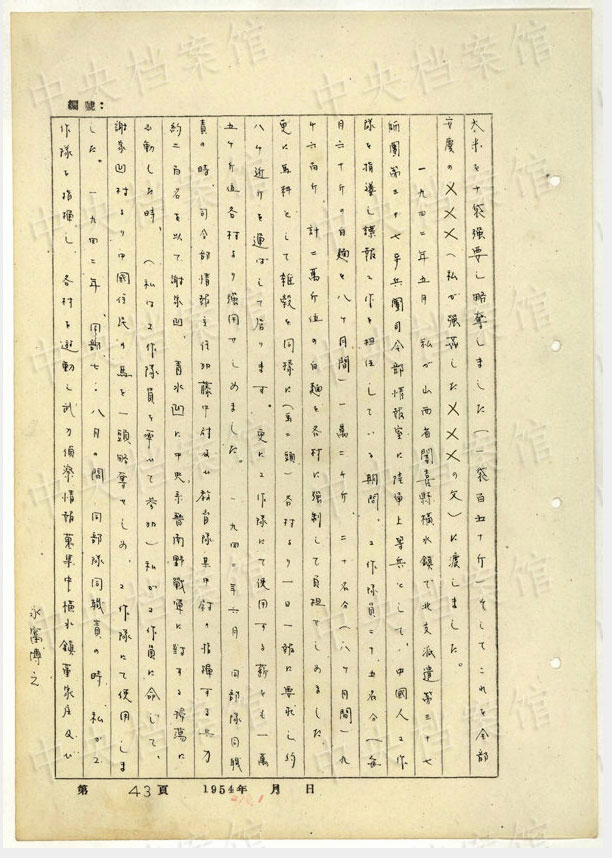 編號：
大米を十袋強要し略奪しました（一袋百五十斤）そしてこれを全部
安慶の×××（私が強姦した×××の父）に渡しました。
一九四二年五月 私が山西省聞喜縣横水鎮で北支派遣第三十七
師團第二十七歩兵團司令部情報室に陸軍上等兵として、中國人工作
隊を指導し諜報工作を担任している期間。工作隊員二十五名分（毎
月六十斤の白麺を八ヶ月間）一萬二千斤 二十名分（八ヶ月間）九
千六百斤 計二萬斤位の白麺を各村に強制して負担せしめました。
更に馬料として雑穀を同様に（馬二頭）各村より一日一部に要求し約
八千近斤を運ばして居ります。更に工作隊にて使用する薪をも一萬
五千斤位各村より強図せしめました。一九四二年六月 同部隊同職
責の時、司令部情報主任加藤中尉及び教育隊某中尉の指揮する兵力
約二百名を以て謝家凹、青水凹に中央系晋南野戰軍に對する掃蕩に
出動した時、（私は工作隊員を率いて参加）私が工作員に命じて、
謝家凹村より中國住民の馬を一頭略奪せしめ、工作隊にて使用しま
した。一九四二年、同部七・八月の間 同部隊同職責の時、私が工
作隊を指揮し、各村を遊動し武力偵察情報蒐集中横水鎮董家庄及び
永富博之
第 43 頁 1954年 月 日